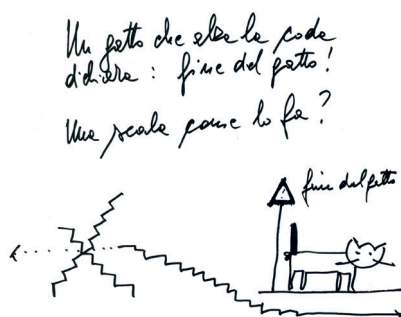 Un gatto che alza la coda
dichiara: fine del gatto!
Una scala come lo fa?
fine del gatto